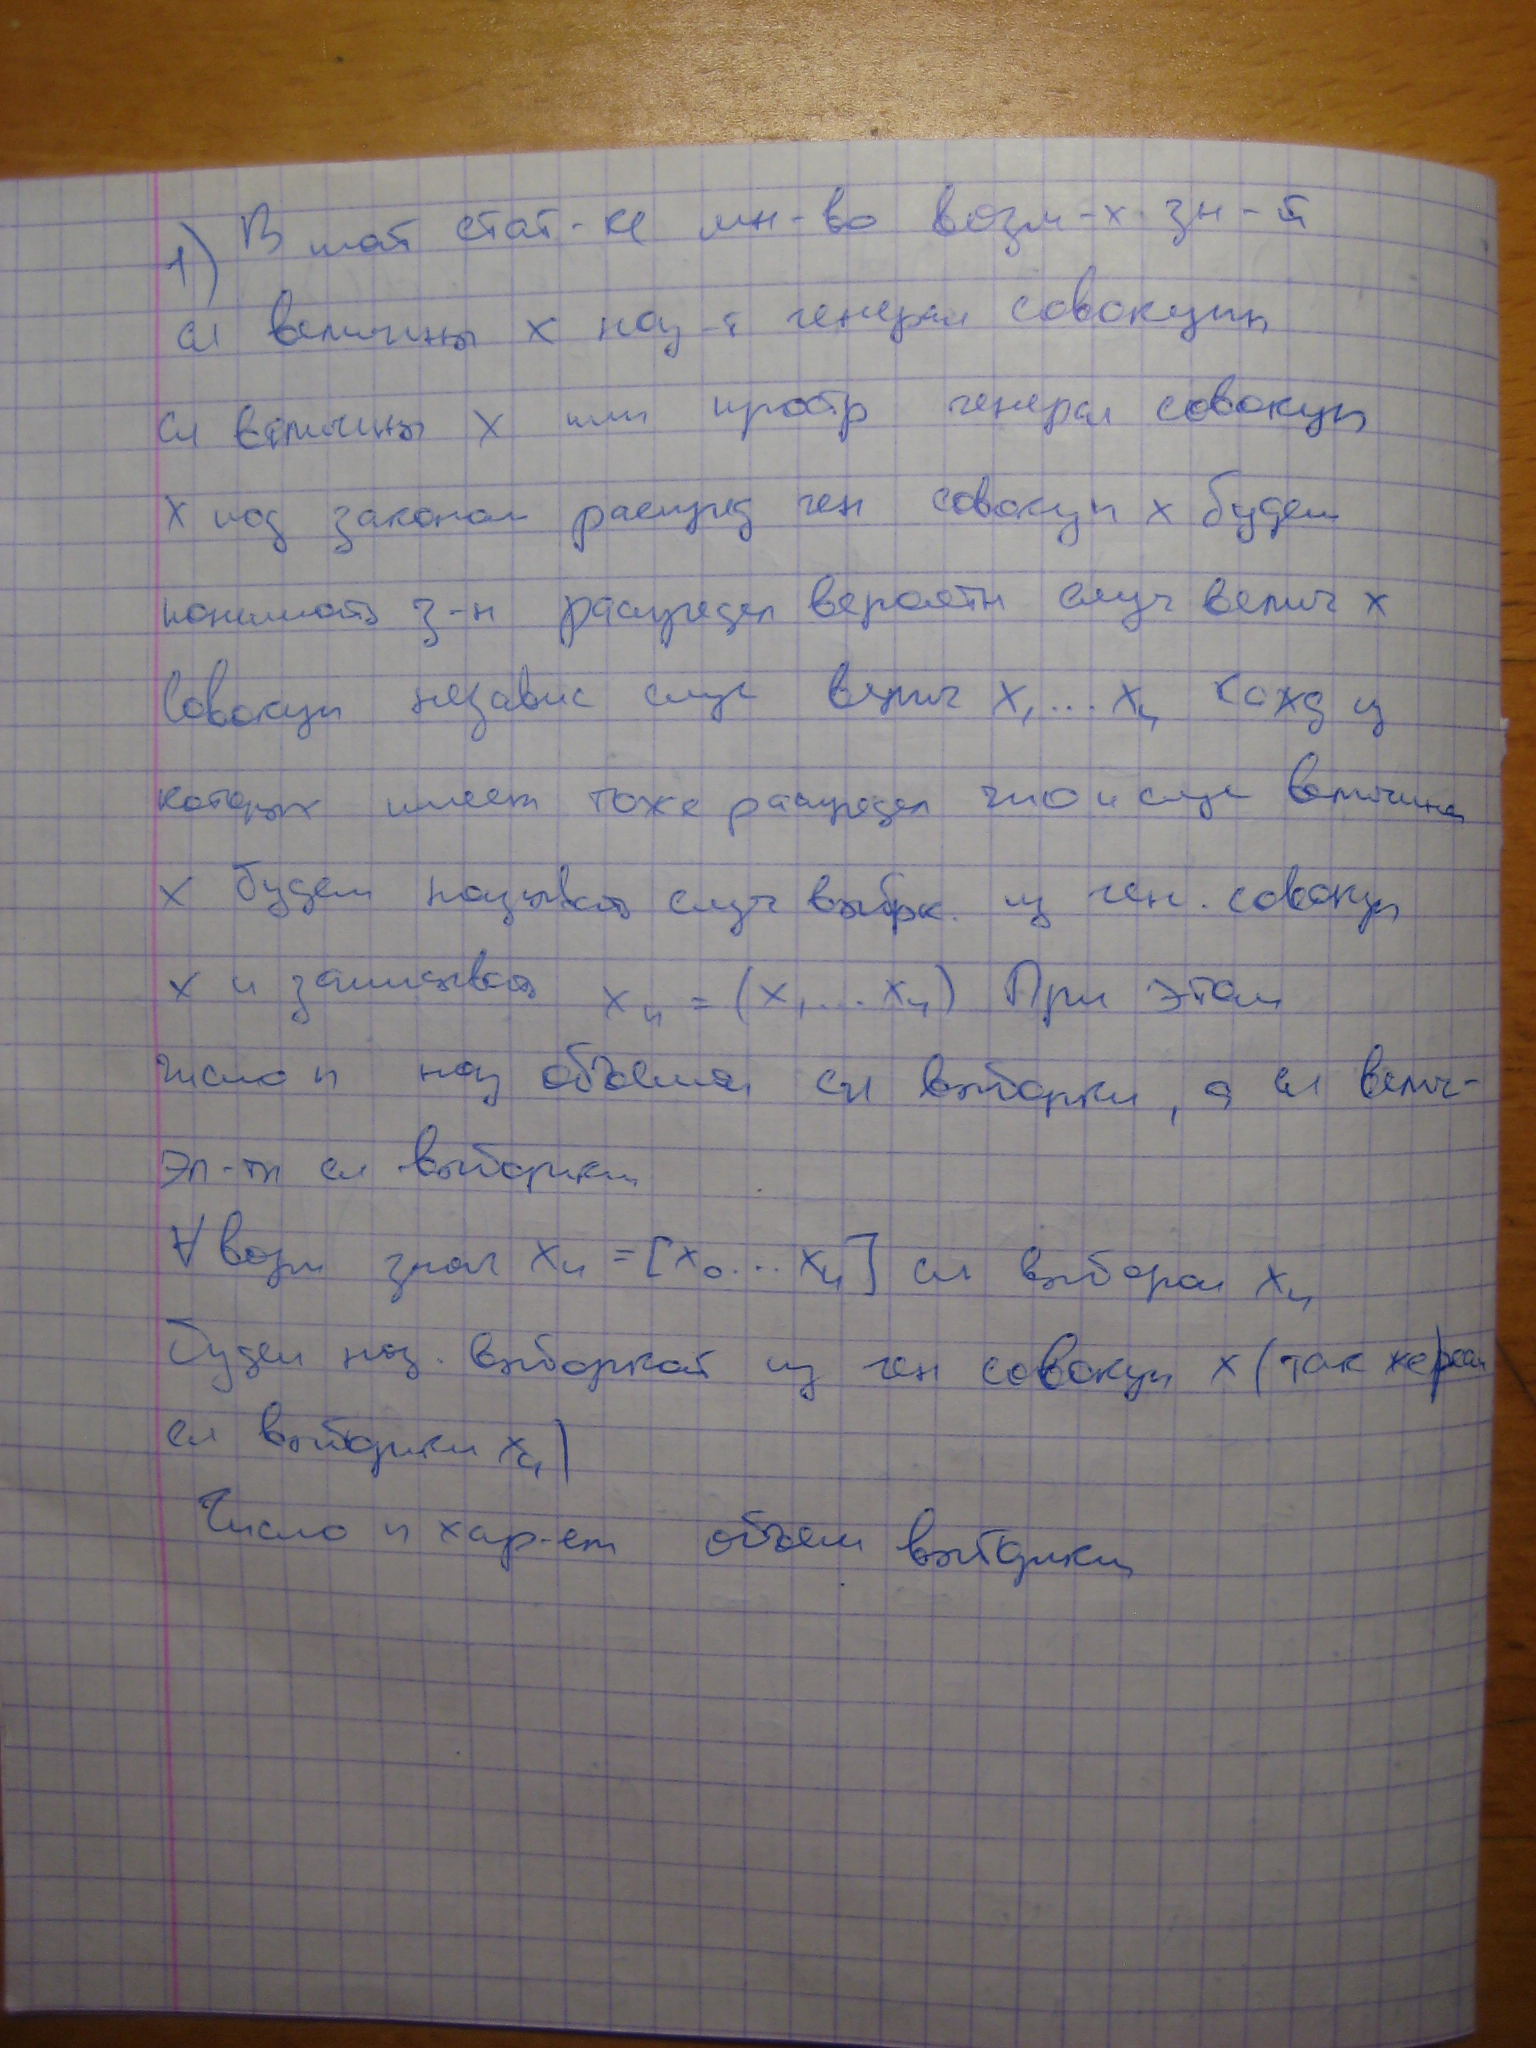 1) В мат стат-ке мн-во возм-х зн-й
сл величины х наз-я генерал совокупн
сл величины х или простр генерал совокуп
х под законом распред ген совокуп х будем
понимать з-н распредел вероятн случ велич х
Совокуп независ случ велич x₁...xₙ кажд из
которых имеет тоже распредел что и случ величина
х будем называть случ выбрк. из ген. совокуп
х и записывать xₙ = (x₁...xₙ) При этом
число n наз объемом сл выборки, а сл велич-
эл-ти сл выборки
∀ возм знач xₙ = [x₀...xₙ] сл выборои xₙ
будем наз. выборкой из ген совокуп х (так же реал
сл выборки xₙ)
Число n хар-ет объем выборки